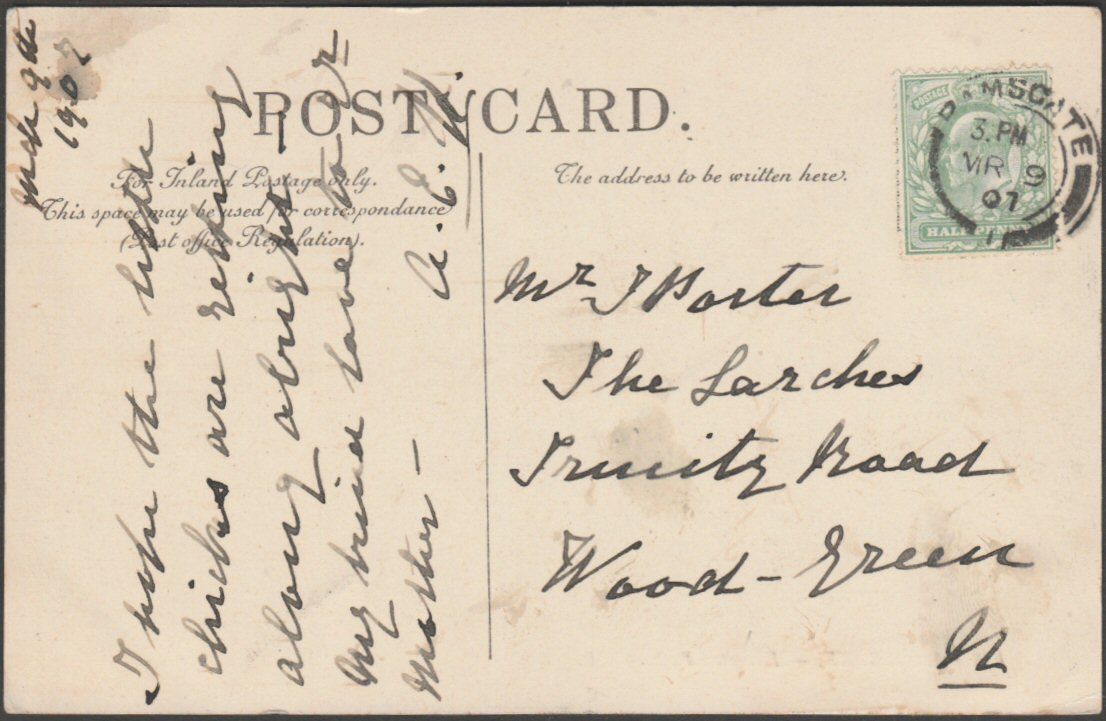 POST CARD.
For Inland Postage only.
This space may be used for correspondence
(Post office Regulation).
The address to be written here.
POSTAGE
HALFPENNY
RAMSGATE
3. PM
MR 9
07
March 9th
1907
I hope the little
chicks are getting
along alright –
My kind love to yr
Mother –
A. E.
Mr J Porter
The Larches
Trinity Road
Wood-Green
N